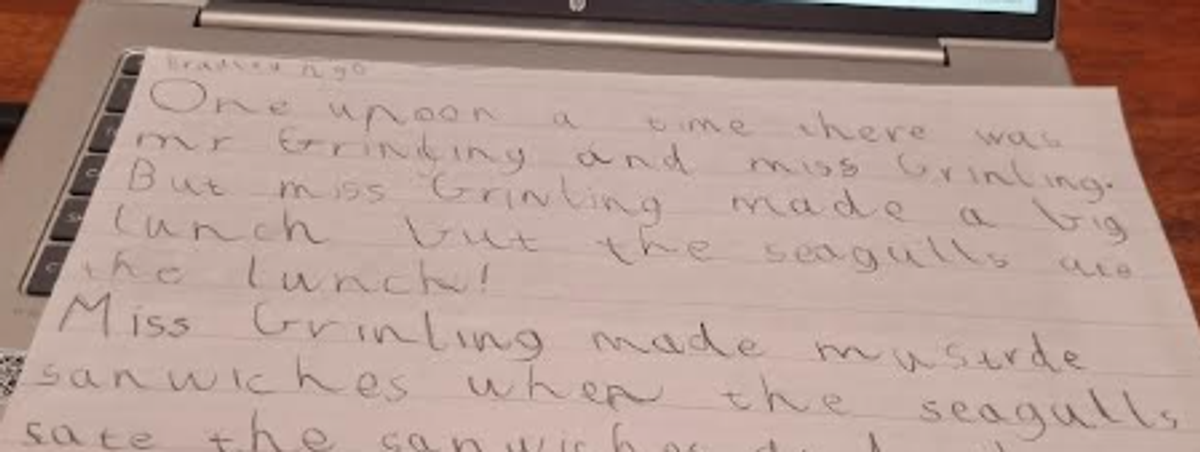 One upoon a time there was
mr Grinting and miss Grinling.
But miss Grinling made a big
lunch but the seagulls ate
the lunch!
Miss Grinling made musterde
sanwiches when the seagulls
sate the sanwiches